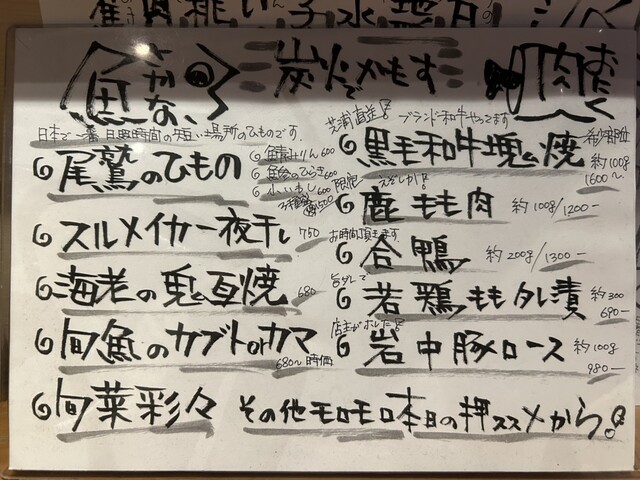 魚 さかな
炭火でかもす
肉 おにく
日本で一番日照時間の短い場所のひものです。
尾鷲のひもの
鯖みりん 600
鯵のひらき 600
小いわし 600
スルメイカ一夜干し 750
海老の鬼瓦焼 680
旬魚のカブトorカマ
680〜時価
旬菜彩々 その他モロモロ本日の押ススメから
芝浦直送! ブランド和牛やってます
黒毛和牛塊焼
約100g
1600〜
限定 えぞしか!
鹿もも肉 約100g/1200-
お時間頂きます
合鴨 約200g/1300-
旨ダレで
若鶏ももタレ漬 約300
690-
店主がホレた!
岩中豚ロース 約100g
980-